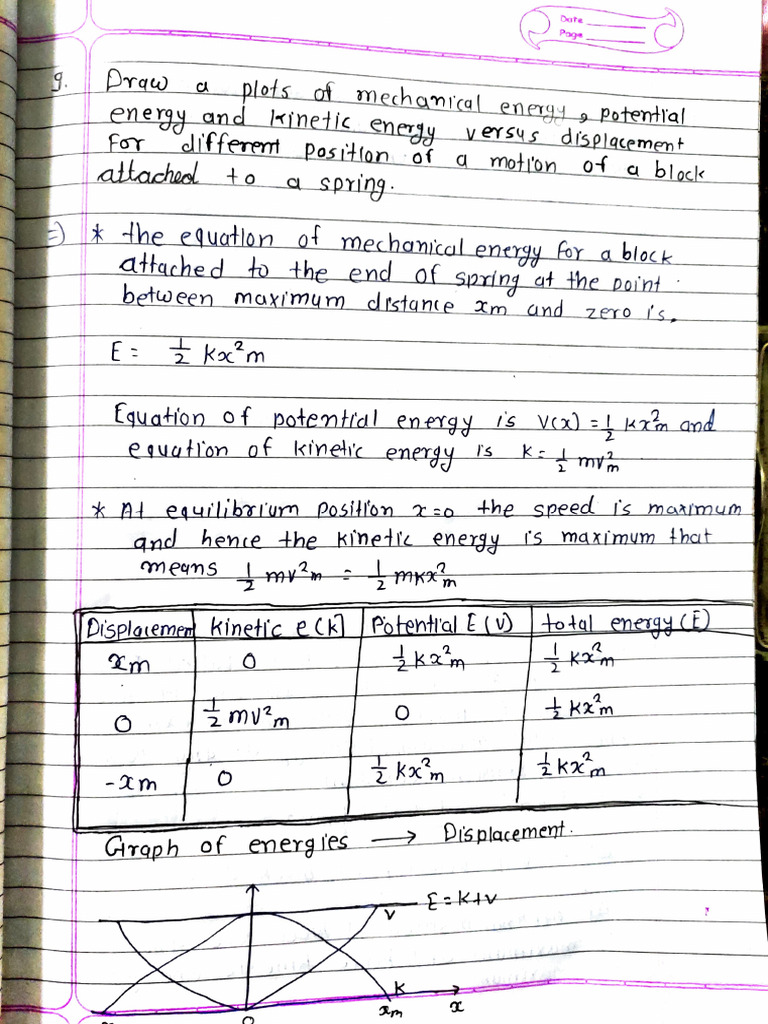 Date
Page
9. Draw a plots of mechanical energy, potential
energy and kinetic energy versus displacement
For different position of a motion of a block
attached to a spring.
=) * the equation of mechanical energy for a block
attached to the end of spring at the point
between maximum distance xm and zero is.
E = 1/2 kx²m
Equation of potential energy is V(x) = 1/2 kx²m and
equation of kinetic energy is k = 1/2 mv²m
* At equilibrium position x=0 the speed is maximum
and hence the kinetic energy is maximum that
means 1/2 mv²m = 1/2 mkx²m
Displacement kinetic e(k) Potential E(v) total energy(E)
xm 0 1/2 kx²m 1/2 kx²m
0 1/2 mv²m 0 1/2 kx²m
-xm 0 1/2 kx²m 1/2 kx²m
Graph of energies → Displacement.
E = k+v
v
k
xm x
0